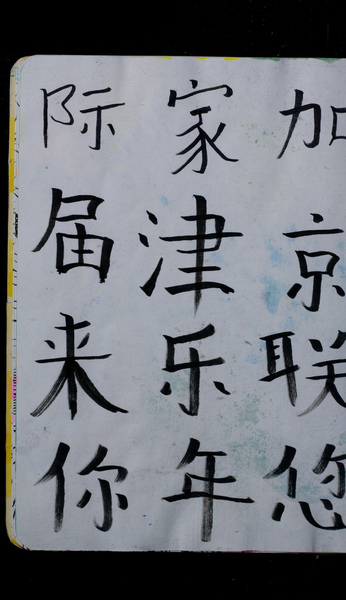 际家加
届津京
来乐联
你年您